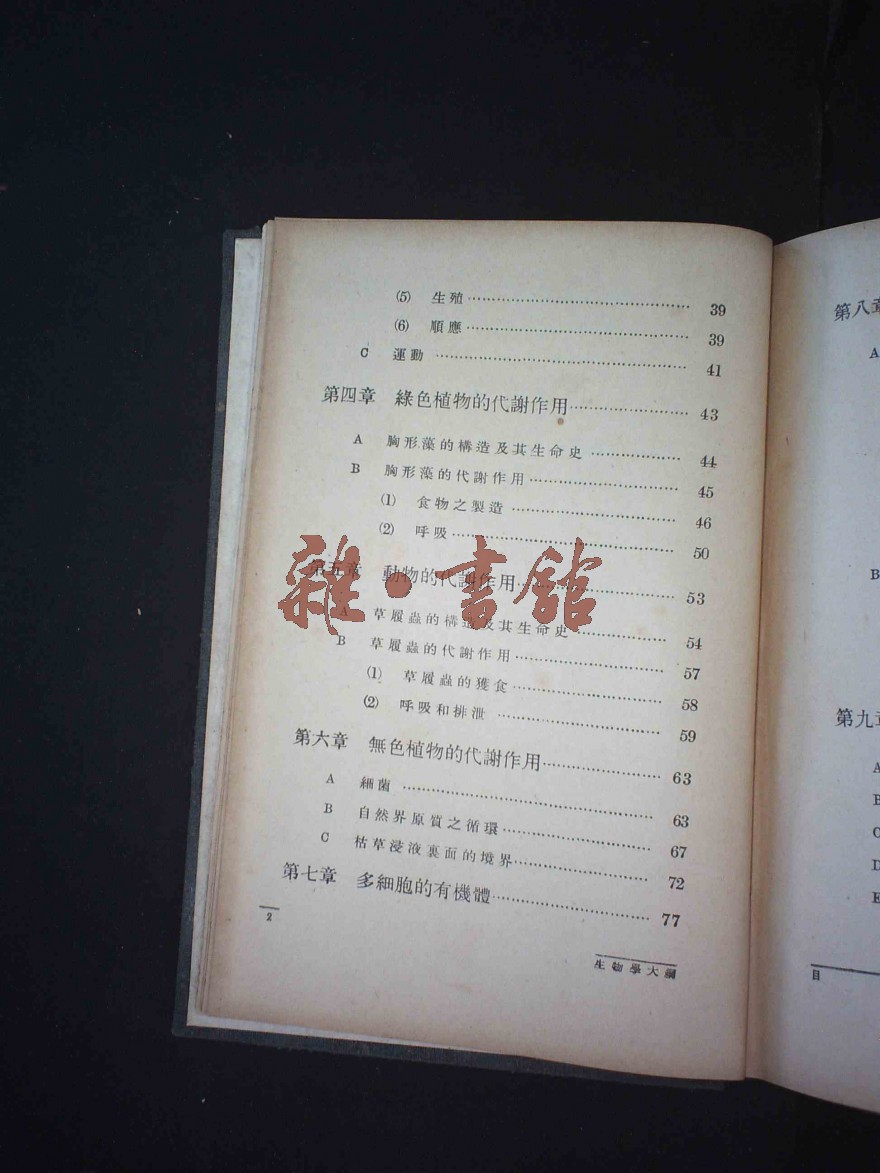 (5) 生殖 39
(6) 順應 39
C 運動 41
第四章 綠色植物的代謝作用 43
A 胸形藻的構造及其生命史 44
B 胸形藻的代謝作用 45
(1) 食物之製造 46
(2) 呼吸 50
第五章 動物的代謝作用 53
A 草履蟲的構造及其生命史 54
B 草履蟲的代謝作用 57
(1) 草履蟲的獲食 58
(2) 呼吸和排泄 59
第六章 無色植物的代謝作用 63
A 細菌 63
B 自然界原質之循環 67
C 枯草浸液裏面的境界 72
第七章 多細胞的有機體 77
2
生物學大綱
雜·書館
第八章
A
B
第九章
A
B
C
D
E
目